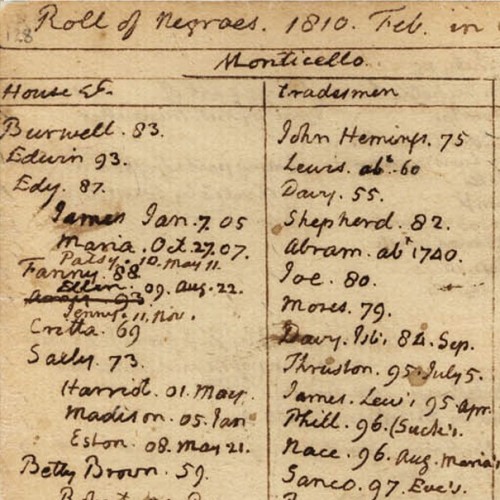 128
Roll of Negroes. 1810. Feb. in
Monticello.
House &c.
Burwell. 83.
Edwin 93.
Edy. 87.
James Jan. 7. 05
Maria. Oct. 27. 07.
Patsy. 10. May 11.
Fanny. 88
Ellen. 09. Aug. 22.
93
Jenny. 11. Nov.
Cretta. 69
Sally. 73.
Harriot. 01. May.
Madison. 05. Jan
Eston. 08. May 21.
Betty Brown. 59.
tradesmen
John Hemings. 75
Lewis. abt. 60
Davy. 55.
Shepherd. 82.
Abram. abt 1740.
Joe. 80.
Moses. 79.
Davy. Isb's 84. Sep.
Thruston. 95. July 5.
James. Lew's 95 Apr.
Phill. 96. (Suck's.
Nace. 96. Aug. Maria's
Sanco. 97 Eve's.